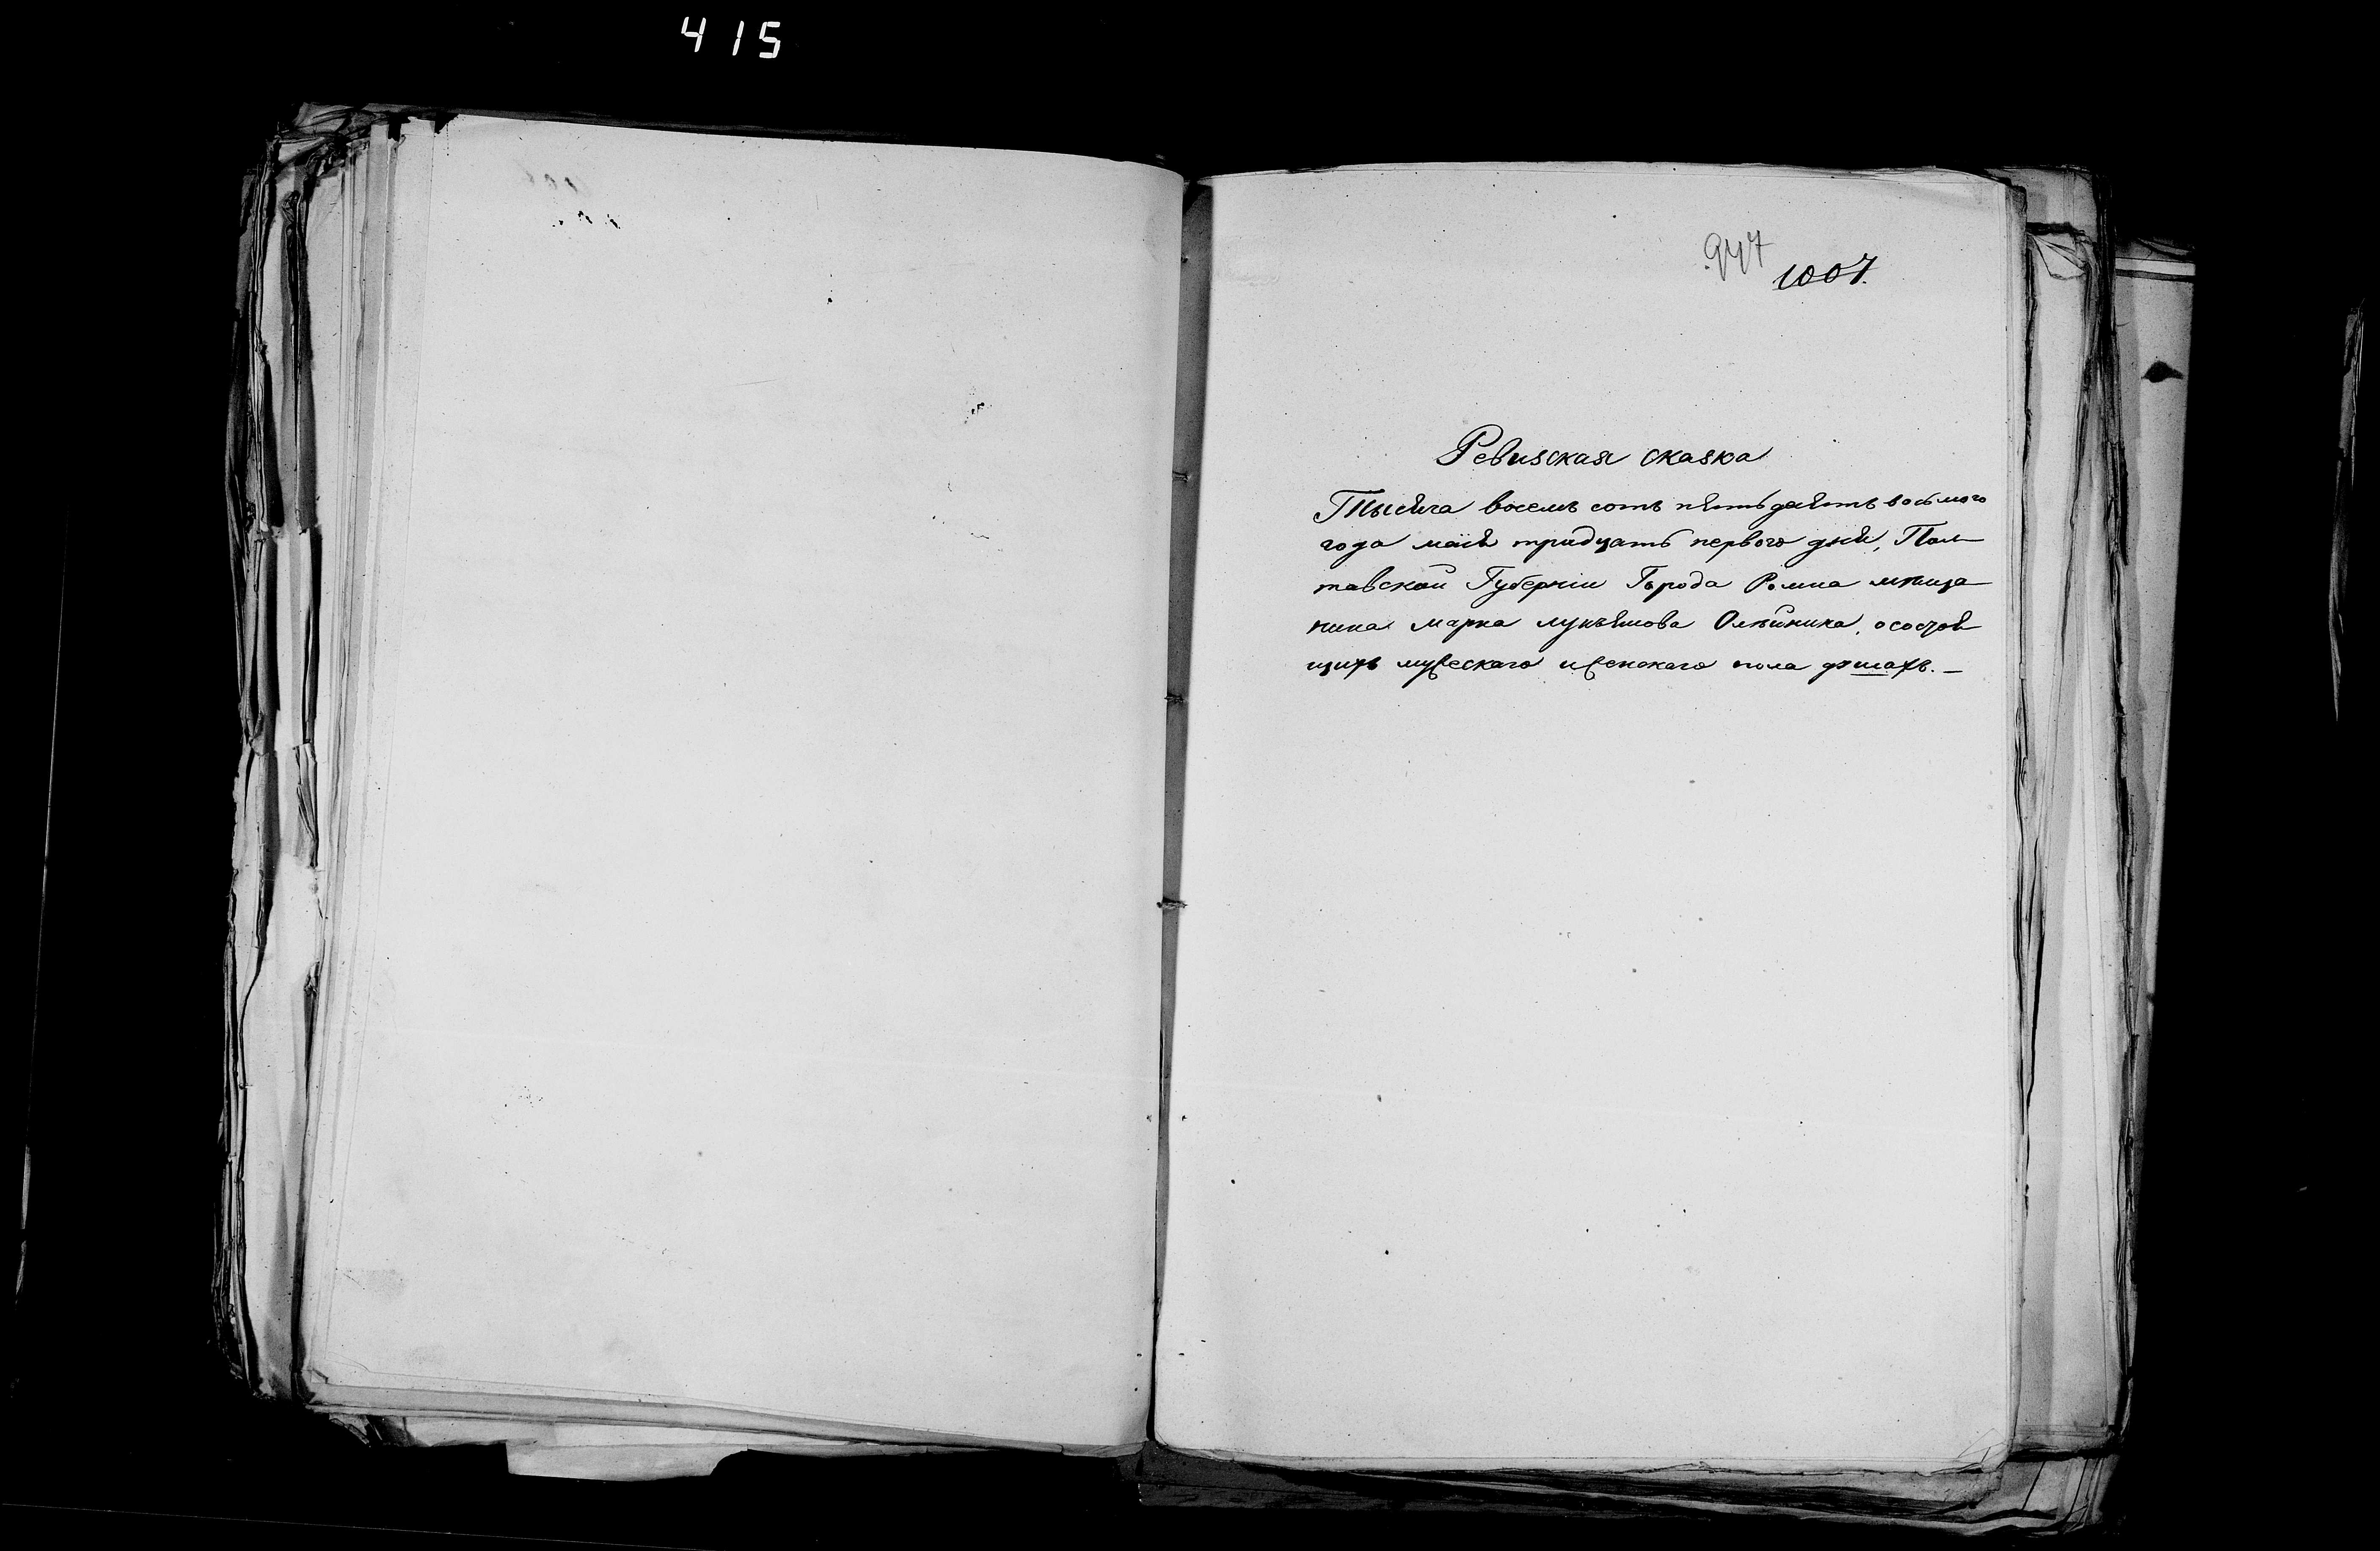 415
947
1007.
Ревизская сказка
Тысяча восемь сотъ пятьдесятъ восьмого
года маія тридцать первого дня, Пол-
тавской Губерніи Города Ромна мѣща-
нина Марка Лукьянова Олѣйника, о состоя-
щихъ мужескаго и женскаго пола душахъ. —